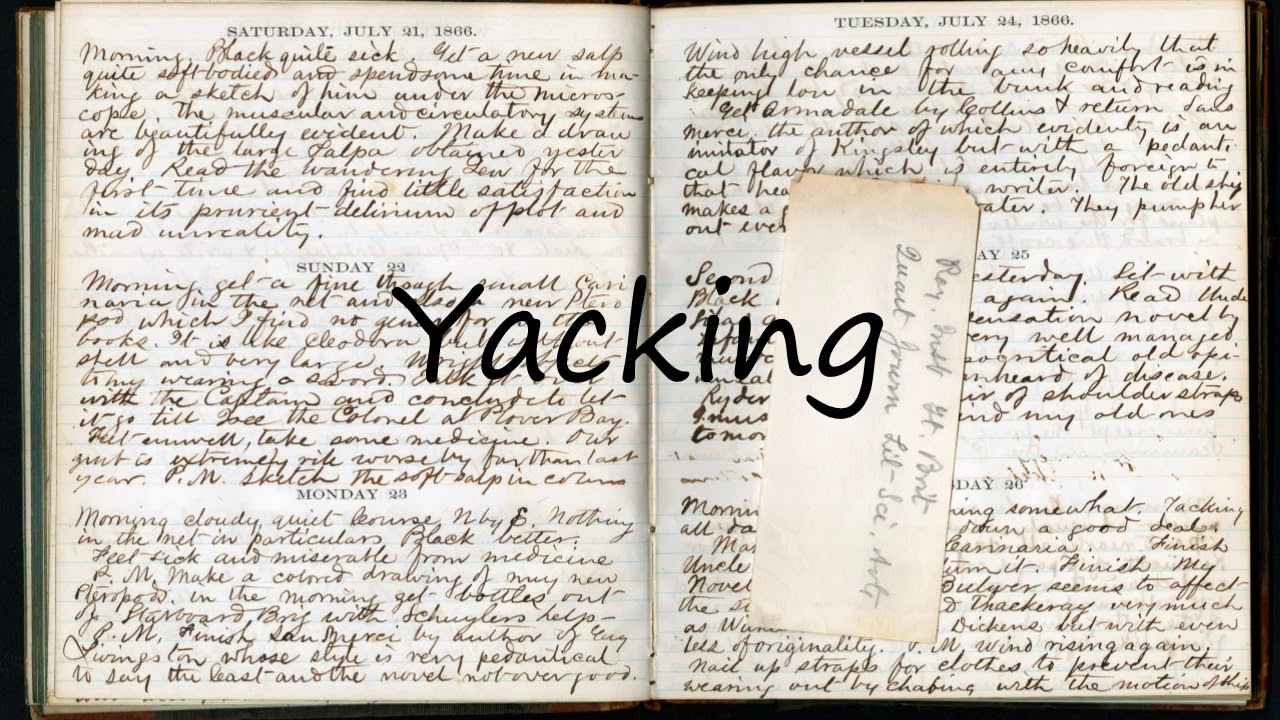 SATURDAY, JULY 21, 1866.
Morning. Black quite sick. Get a new salp
quite soft bodied and spend some time in ma-
king a sketch of him under the micros-
cope. the muscular and circulatory systems
are beautifully evident. Make a draw
ing of the large Salpa obtained yester
day. Read the wandering Jew for the
first time and find little satisfaction
in its prurient delirium of plot and
mad unreality.
SUNDAY 22
Morning get a fine though small Cari
naria in the net and also a new Ptero
pod which I find no genus for in the
books. It is like Cleodora but without
shell and very large.
to my wearing a sword.
with the Captain and conclude to let
it go till I see the Colonel at Plover Bay.
Felt unwell, take some medicine. Our
grub is extremely vile worse by far than last
year. P.M. Sketch the soft salp in colours
MONDAY 23
Morning cloudy, quiet Course N by E. Nothing
in the net in particular. Black better.
Feel sick and miserable from medicine
P. M. Make a colored drawing of my new
Pteropod. in the morning get bottles out
of Starboard Brig with Schuylers help-
P. M. Finish Sans Merci by author of Guy
Livingston whose style is very pedantical
to say the least and the novel not over good.
TUESDAY, JULY 24, 1866.
Wind high vessel rolling so heavily that
the only chance for any comfort is in
keeping low in the bunk and reading
Get Armadale by Collins & return Sans
merci. the author of which evidently is an
imitator of Kingsley but with a pedanti
cal flavor which is entirely foreign to
that writer. The old ship
makes a water. They pump her
out
Yacking
AY 25
Second yesterday. Sit with
Black again. Read Unde
sensation novel by
very well managed
old opi-
unheard of disease.
Ryder of shoulder straps
I mus and my old ones
tomor
DAY 26
Mornin somewhat. Tacking
all da down a good deal
Mar Carinaria. Finish
Uncle it. Finish My
Novel Bulwer seems to affect
the s & thackeray very much
as Dickens but with even
less of originality. P. M. Wind rising again.
Nail up straps for clothes to prevent their
wearing out by chafing with the motion of ship
Roy. Inst Gt. Brit
Quart Journ Lit-Sci, Arts